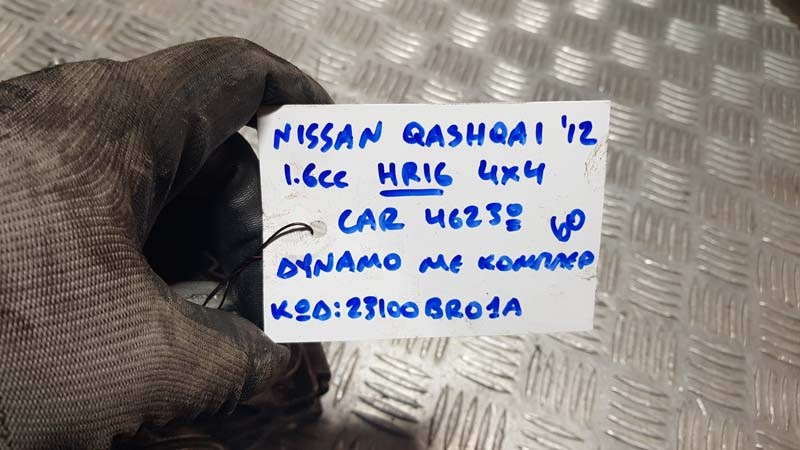 NISSAN QASHQAI '12
1.6cc HR16 4x4
CAR 4623º 60
DYNAMO ME ΚΟΜΠΛΕΡ
ΚºΔ:23100BR01A